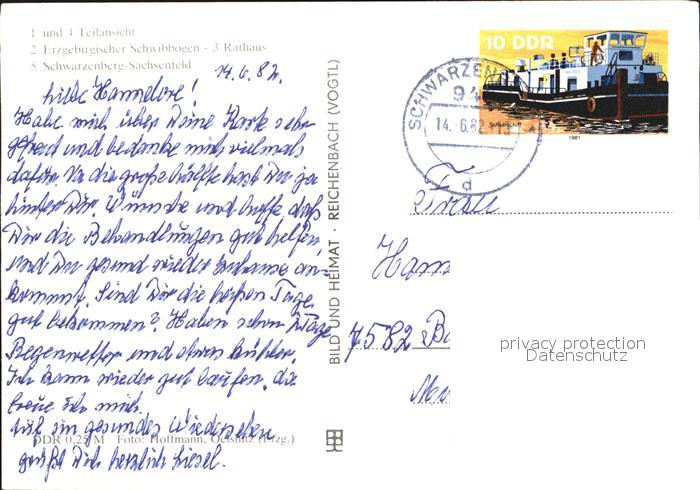 1 und 4 Teilansicht
2 Erzgebirgischer Schwibbogen - 3 Rathaus
5 Schwarzenberg-Sachsenfeld
14.6.82.
Liebe Hannelore!
Habe mich über Deine Karte sehr
gefreut und bedanke mich vielmals
dafür. Na die große Hälfte hast Du ja
hinter Dir. Wünsche und hoffe, daß
Dir die Behandlungen gut helfen,
und Du gesund wieder zuhause an-
kommst. Sind Dir die heißen Tage
gut bekommen? Haben schon 2 Tage
Regenwetter und etwas kühler.
Ich kann wieder gut laufen, da
freue ich mich.
Auf ein gesundes Wiedersehen
grüßt Dich herzlich Liesel.
DDR 0,25 M Foto: Hoffmann, Oelsnitz (Erzg.)
BILD UND HEIMAT · REICHENBACH (VOGTL)
10 DDR
Schubschiff
1981
SCHWARZEN
94
14.-6.82
d
Frau
Hann
7582 Bü
privacy protection
Datenschutz